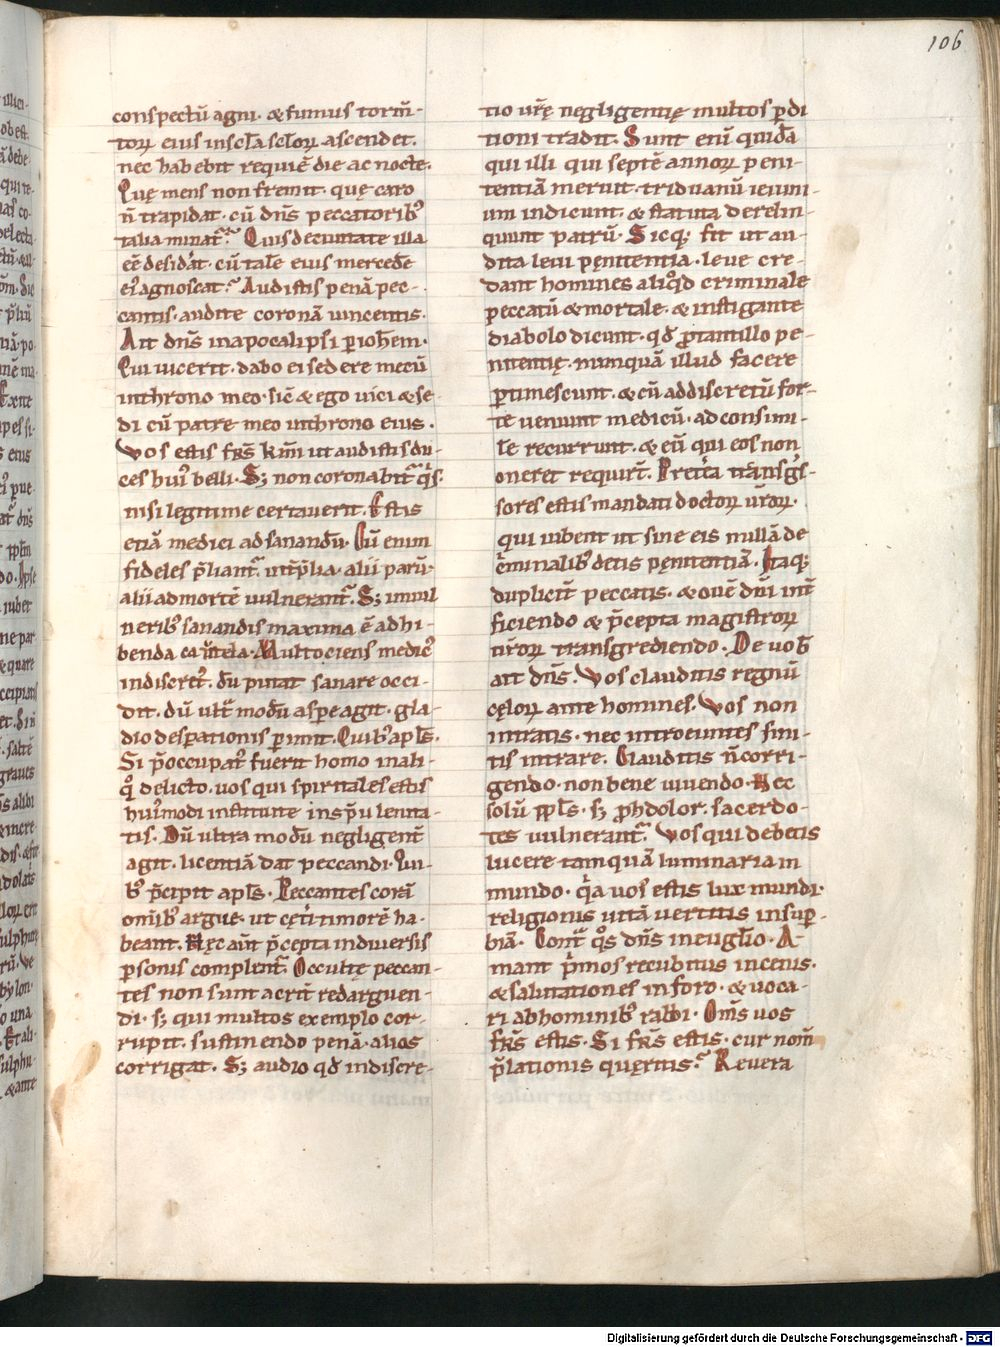 106
conspectū agni · & fumus torm̄-
torꝝ eius in scl̄a scl̄orꝝ ascendet.
nec habebit requiē die ac nocte.
Quę mens non fremit · quę caro
n̄ trapidat · cū dn̄s peccatorib᷒
talia minat᷑? Quis de ciuitate illa
eē desid̓at · cū tale eius mercedē
ee᷒ agnoscat? Audistis penā pec-
cantis · audite coronā uincentis.
Ait dn̄s in apocalipsi ꝑ ioh̄em.
Qui uicerit · dabo ei sedere mecū
in throno meo · sic̄ & ego uici & se-
di cū patre meo in throno eius.
Vos estis fr̄s km̄i ut audistis du-
ces hui᷒ belli. Sꝫ non coronabit᷑ qͥs·
nisi legitime certauerit. Estis
etiā medici ad sanandū. Cū enim
fideles p̄liant᷑ · ut p̄lia · alii parū·
alii ad mortē uulnerant᷑. Sꝫ in uul
nerib᷒ sanandis maxima ē adhi-
benda cautela. Multociens medic᷒
indiscret᷒ · dū putat sanare occi-
dit · dū ult᷑ modū aspe agit · gla-
dio desꝑationis ꝑimit. Quib᷒ apl̄s.
Si p̄occupat᷒ fuerit homo in ali-
qͦ delicto · uos qui spiritales estis
hui᷒modi instruite in sp̄u lenita-
tis. Dū ultra modū negligent̄
agit · licentiā dat peccandi. Qui-
b᷒ p̄cipit apl̄s. Peccantes corā
omīb᷒ argue · ut cęt̓i timorē ha-
beant. Hęc aūt p̄cepta in diuersis
ꝑsonis complent᷑. Occultę peccan-
tes non sunt acrit̄ redarguen-
di · sꝫ qui multos exemplo cor-
rupit · sustinendo penā · alios
corrigat. Sꝫ audio qđ indiscre-
tio ur̄ę negligentię multos ꝑdi
tioni tradit. Sunt enī quidā
qui illi qui septē annorꝝ peni-
tentiā meruit · triduanū ieiuni-
um indicunt · & statuta derelin-
quunt patrū. Sicqꝫ fit ut au-
dita leui pęnitentia · leue cre-
dant homines aliqͥd criminale
peccatū & mortale · & instigante
diabolo dicunt · qđ ꝓ tantillo pe-
nitentię · nunquā illud facere
ꝑtimescunt · & cū ad discretū for-
te ueniunt medicū · ad consimi-
le recurrunt · & eū qui eos non
oneret requir̄t. Pret̓ea transgͣs-
sores estis mandati doctorꝝ ur̄orꝝ.
qui iubent ut sine eis nullā de
cͥminalib᷒ detis pęnitentiā. Itaqꝫ
duplicit̄ peccatis · & ouē dn̄i int̄
ficiendo & p̄cepta magistrorꝝ
ur̄orꝝ transgrediendo. De uob̄
ait dn̄s. Vos clauditis regnū
cęlorꝝ ante homines. Vos non
intratis · nec introeuntes sini-
tis intrare. Clauditis n̄ corri-
gendo · non bene uiuendo. Nec
solū ppl̄s · sꝫ ꝓhdolor · sacerdo-
tes uulnerant᷑. Vos qui debetis
lucere tamquā luminaria in
mundo · qͥa uos estis lux mundi·
religionis uitā uertitis in suꝑ-
biā. Cont̄ qͦs dn̄s in eugl̄io. A-
mant pͥmos recubitus in cenis.
& salutationes in foro · & uoca-
ri ab hominib᷒ rabbi. Om̄s uos
fr̄s estis. Si fr̄s estis · cur nom̄
p̄lationis quęritis? Reuera
Digitalisierung gefördert durch die Deutsche Forschungsgemeinschaft - DFG